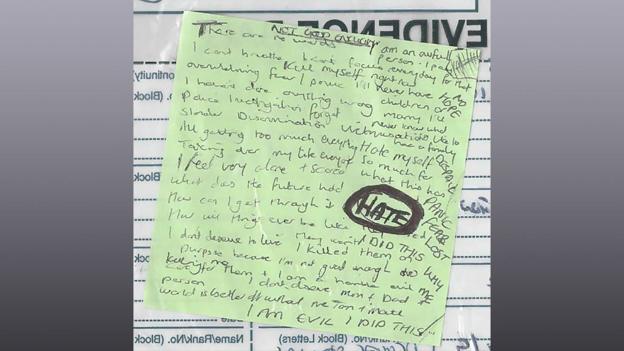 EVIDENCE
Continuity
(Block
(Block
(Block
(Block
(Block
Name/Rank/No. (Block Letters)
NOT GOOD ENOUGH
There are no words I am an awful
I can't breathe I can't focus person - I pay everyday for that
Kill myself right now
overwhelming fear/panic I'll never have NO
children or HOPE
I haven't done anything wrong marry I'll
Police investigation forget never know what
Slander Discrimination Victimisation like to have a family
All getting too much everything Hate myself DESPAIR
Taking over my life everyone so much for what this has
I feel very alone + scared PANIC
What does the future hold HATE FEAR
How can I get through it LOST
How will things ever be like they used I DID THIS
I don't deserve to live I killed them on WHY
purpose because I'm not good enough to ME
care for them + I am a horrible evil
person I don't deserve Mum + Dad
world is better off without me
I AM EVIL I DID THIS